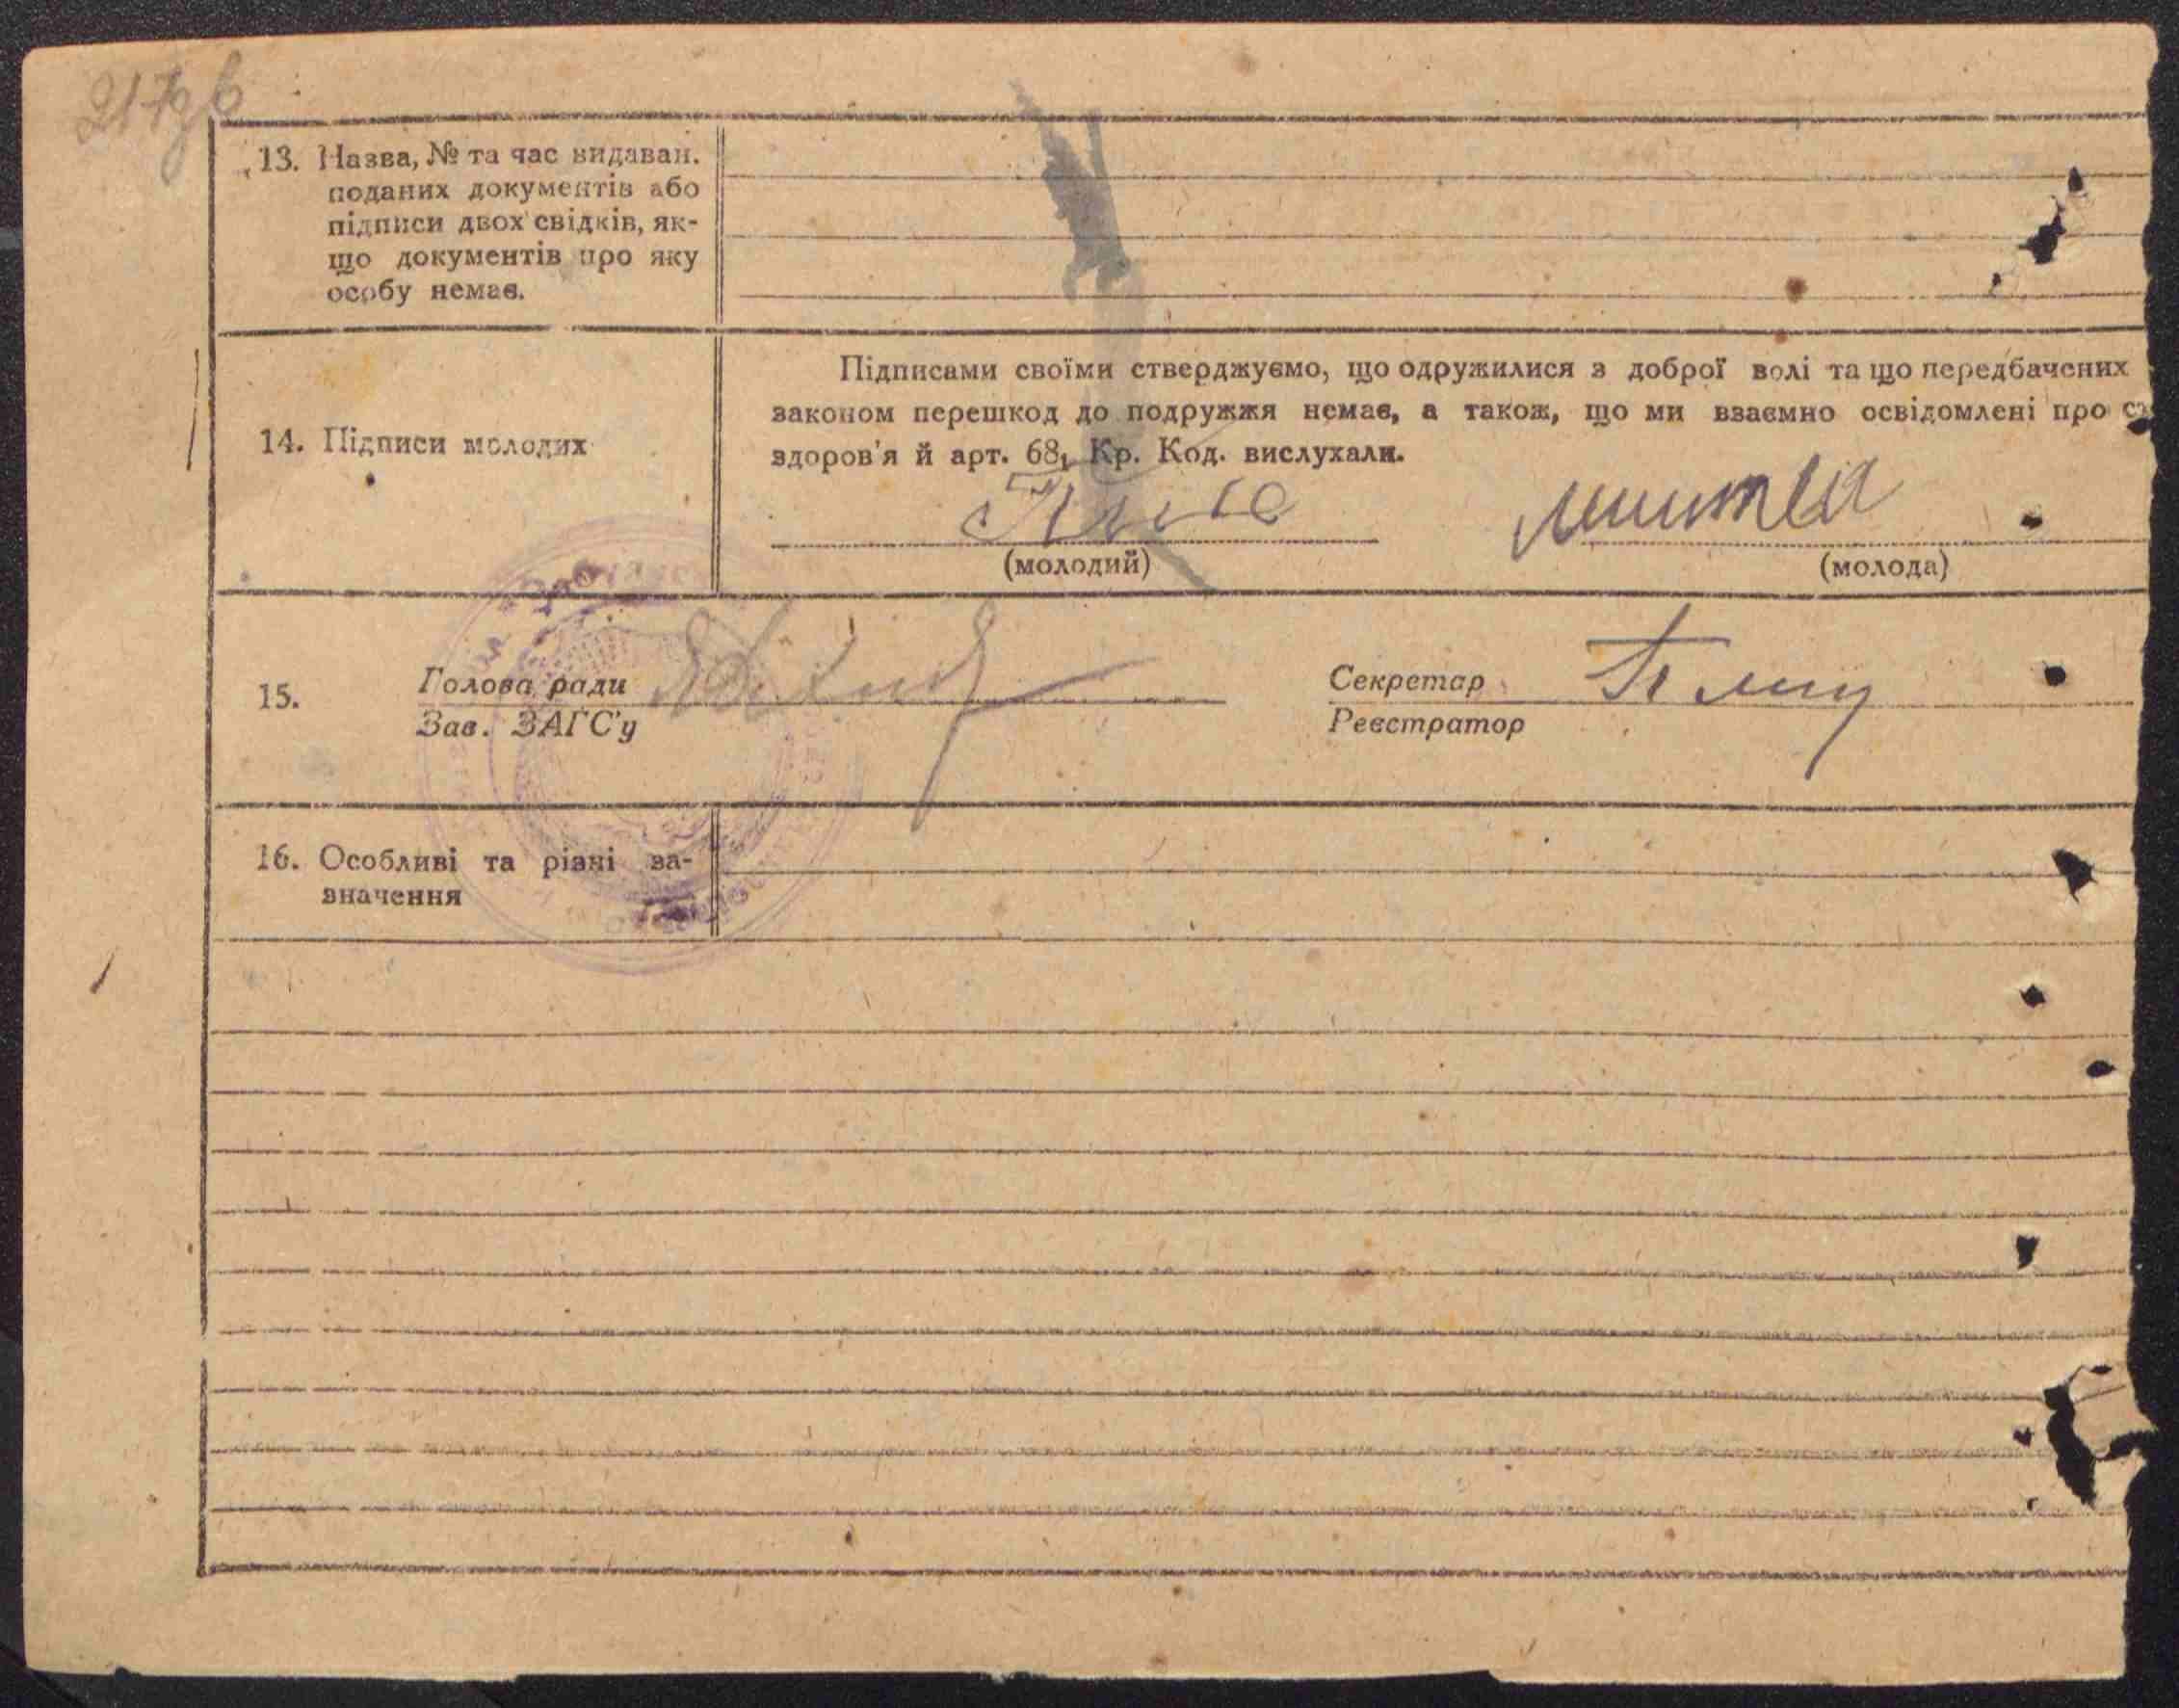 13. Назва, № та час видаван.
поданих документів або
підписи двох свідків, як-
що документів про яку
особу немає.
14. Підписи молодих
Підписами своїми стверджуємо, що одружилися з доброї волі та що передбачених
законом перешкод до подружжя немає, а також, що ми взаємно освідомлені про
здоров'я й арт. 68₁ Кр. Код. вислухали.
(молодий)
(молода)
15.
Голова ради
Зав. ЗАГС'у
Секретар
Реєстратор
16. Особливі та різні за-
значення